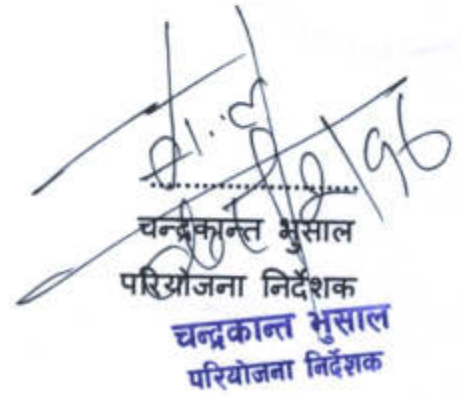 चन्द्रकान्त भुसाल
परियोजना निर्देशक
चन्द्रकान्त भुसाल
परियोजना निर्देशक